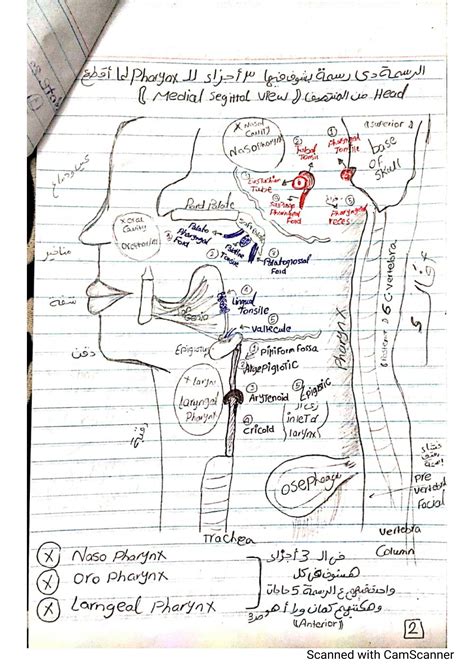 الرسمة دى رسمة بشوف فيها ٣ أجزاء للـ Pharynx لما أقطع
Head من المنتصف (( Medial Segittal View ))
x Nasal
Cavity
Nasopharynx
②
Tubal
Tonsil
①
Pharyngeal
Tonsile
(superior)
base
OF
skull
③ Eustachian
Tube
④
Pharyngeal
Fold
⑤
Pharyngeal
recess
Hard Palate
Soft Palate
x oral
Cavity
①
Palato
Pharyngeal
Fold
②
Palatine
Tonsile
③
Palatoglossal
Fold
مناخير
شفة
دقن
④
Lingual
Tonsile
⑤
Vallecule
Epiglotis
① Piriform Fossa
② Aryepiglotic
③ Arytenoid
④ Cricoid
⑤ Epiglotic
inlet of
larynx
x larynx
laryngeal
Pharynx
Pharynx
6 C. vertebra
osephagus
Pre
vertebral
Facial
Trachea
vertebra
Column
ⓧ Naso Pharynx
ⓧ Oro Pharynx
ⓧ Larngeal Pharynx
فى الـ 3 أجزاء
هنشوف فى كل
واحد فيهم ع الرسمة 5 حاجات
وهكتبهم كمان ورا أهو
((Anterior))
ص3
2
Scanned with CamScanner